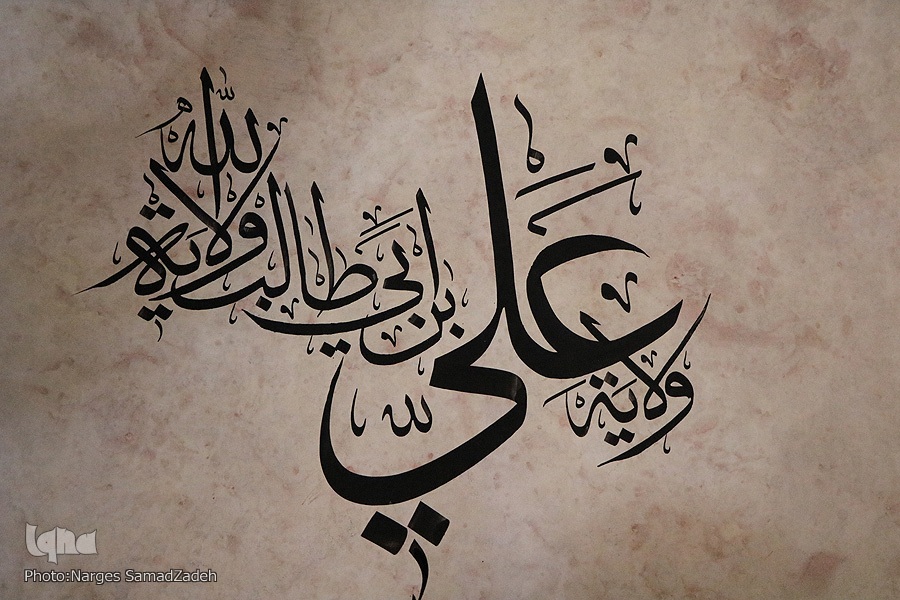 ولاية علي بن ابي طالب ولاية الله
Iqna
Photo:Narges SamadZadeh